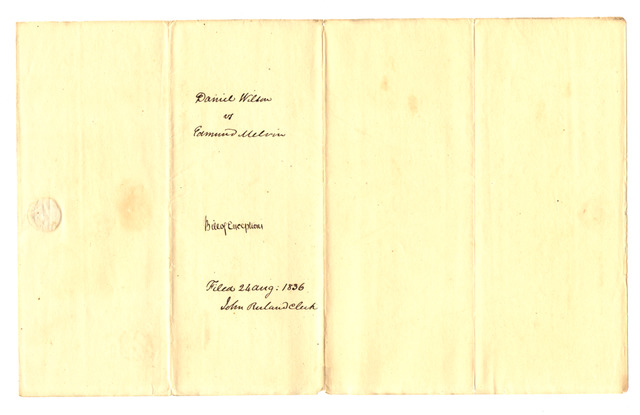 Daniel Wilson
vs
Edmund Melvin
Bill of Exceptions
Filed 24 Aug: 1836
John Ruland Clerk